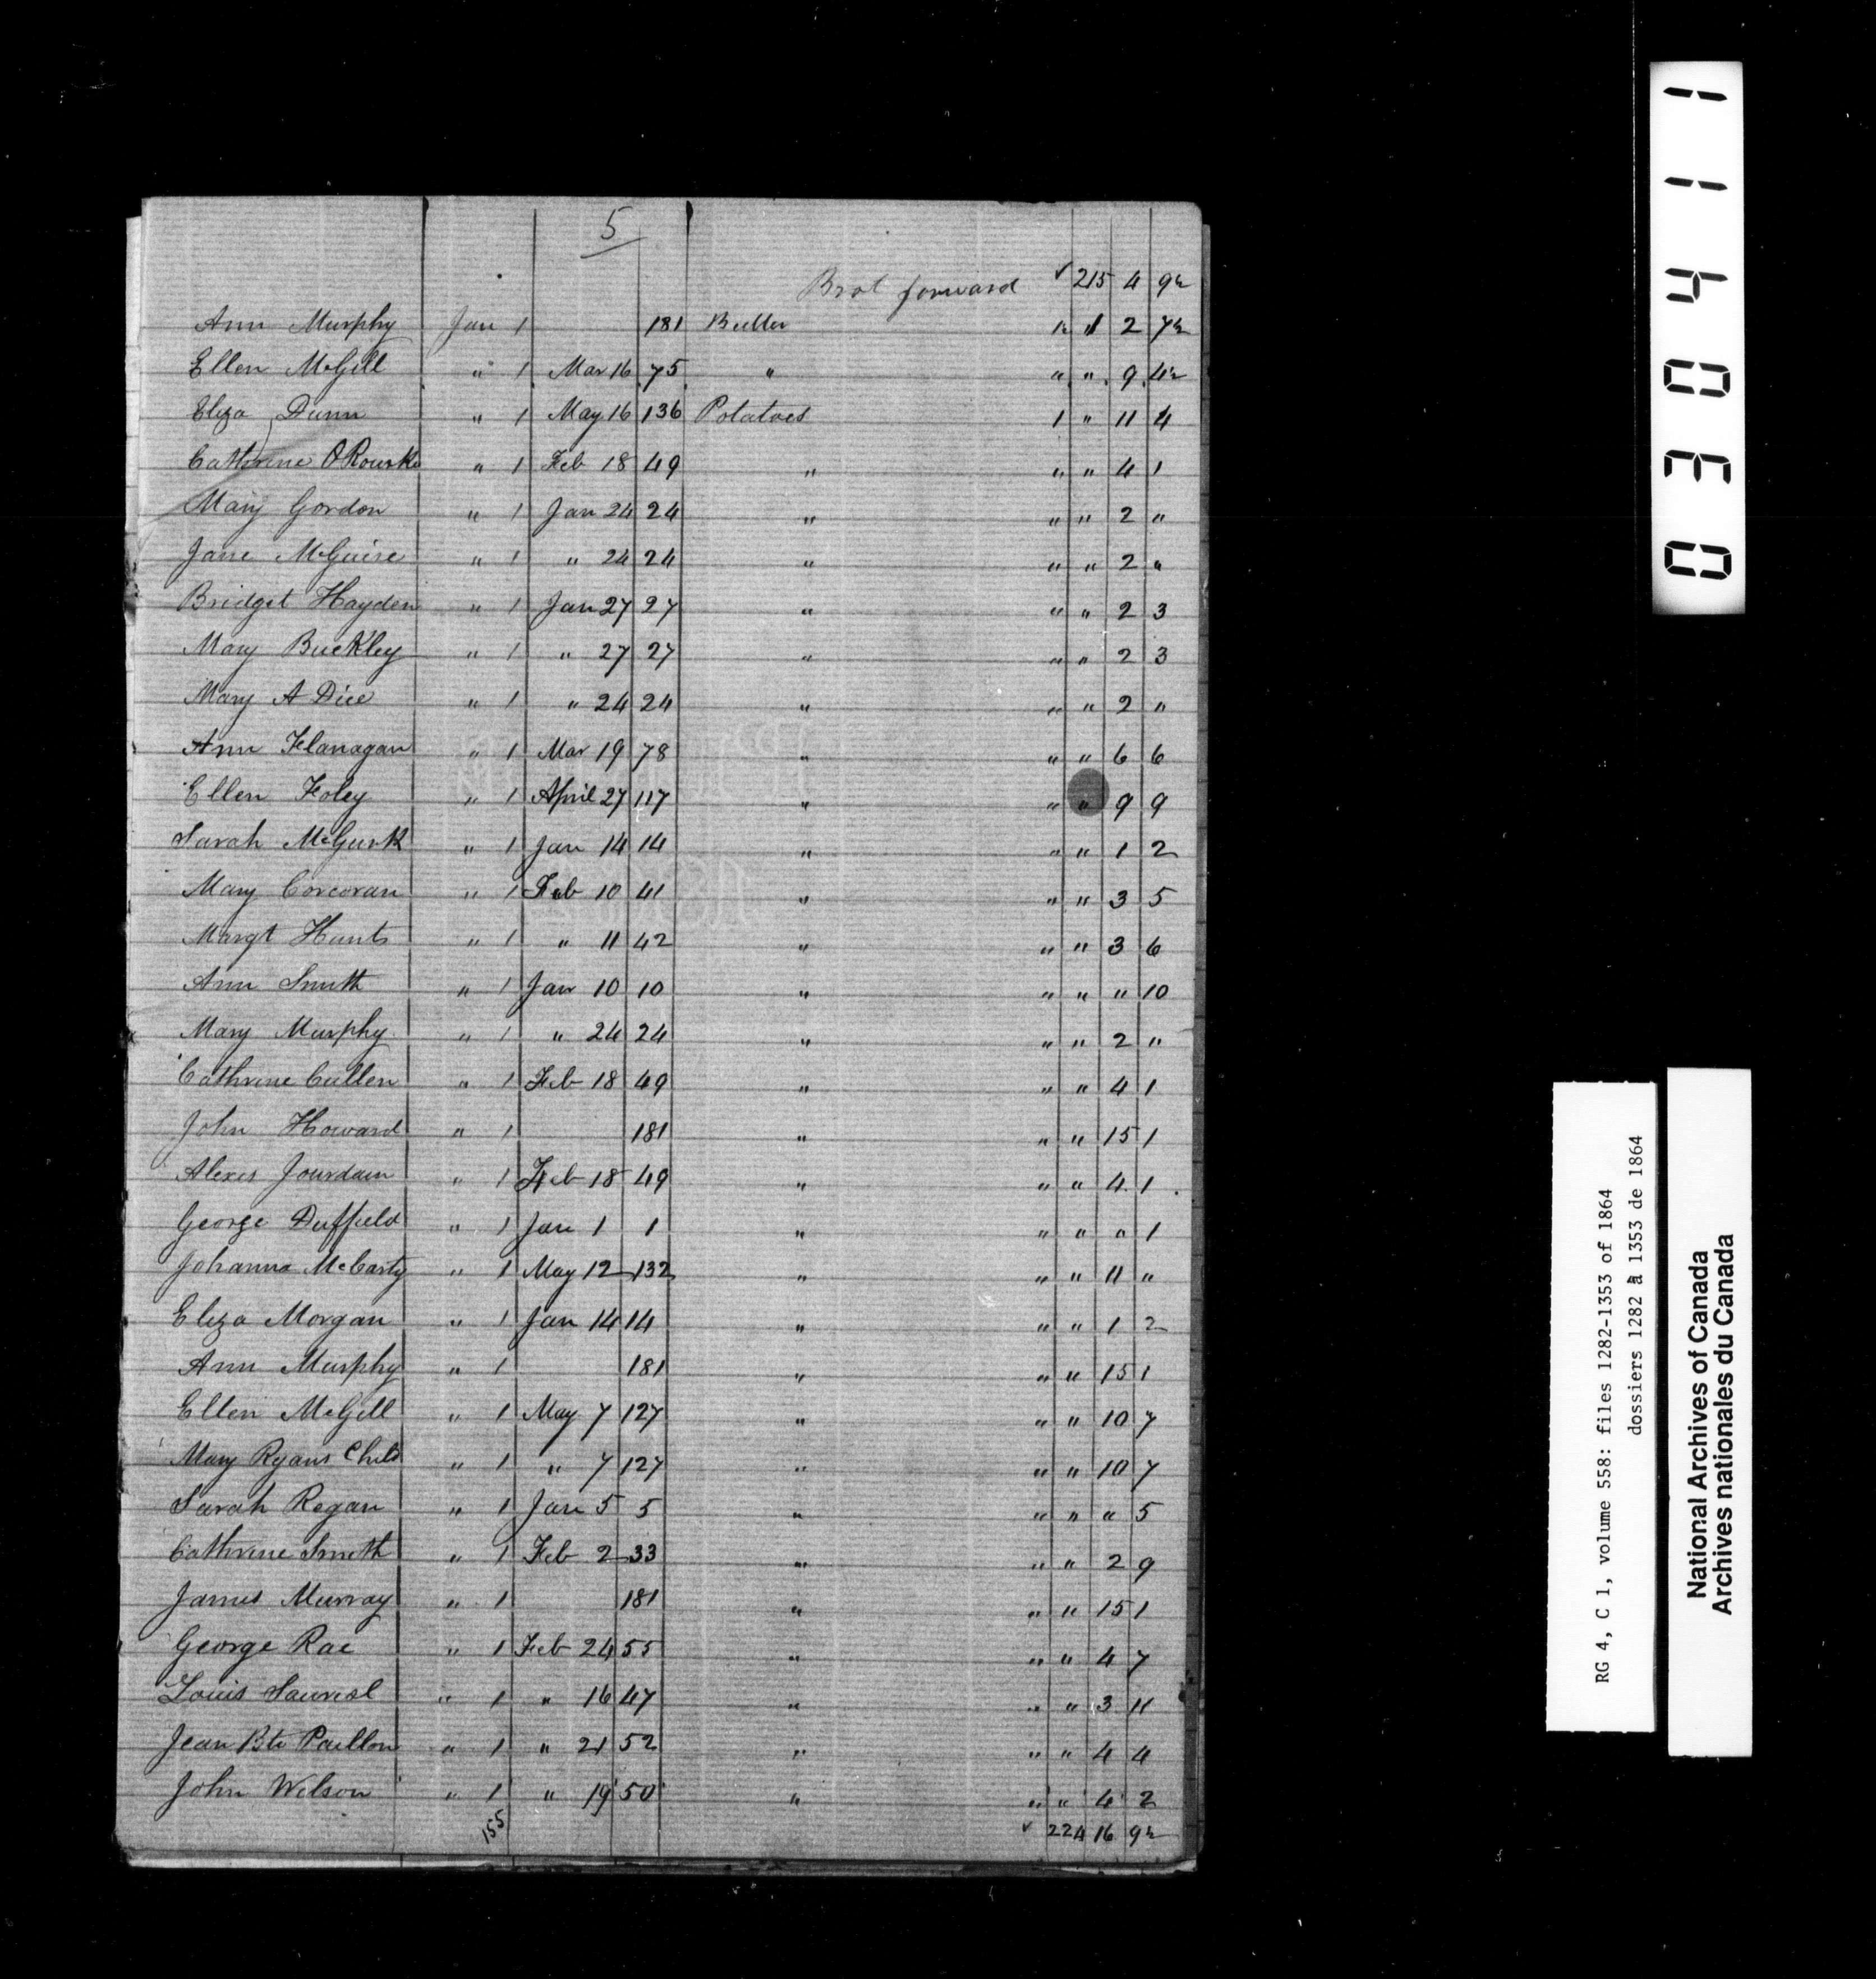 5
Brot forward ✓ 215 4 9½
Ann Murphy Jan 1 181 Butter ½ " 1 2 7½
Ellen McGill " 1 Mar 16 75 " " " 9 4½
Eliza Dunn " 1 May 16 136 Potatoes 1 " 11 4
Catherine O Rourke " 1 Feb 18 49 " " " 4 1
Mary Gordon " 1 Jan 24 24 " " " 2 "
Jane McGuire " 1 " 24 24 " " " 2 "
Bridget Hayden " 1 Jan 27 27 " " " 2 3
Mary Buckley " 1 " 27 27 " " " 2 3
Mary A Dice " 1 " 24 24 " " " 2 "
Ann Flanagan " 1 Mar 19 78 " " " 6 6
Ellen Foley " 1 April 27 117 " " " 9 9
Sarah McGurk " 1 Jan 14 14 " " " 1 2
Mary Corcoran " 1 Feb 10 41 " " " 3 5
Margt Hunts " 1 " 11 42 " " " 3 6
Ann Smith " 1 Jan 10 10 " " " " 10
Mary Murphy " 1 " 24 24 " " " 2 "
Cathrine Cullen " 1 Feb 18 49 " " " 4 1
John Howard " 1 181 " " " 15 1
Alexis Jourdain " 1 Feb 18 49 " " " 4 1
George Duffield " 1 Jan 1 1 " " " " 1
Johanna McCarty " 1 May 12 132 " " " 11 "
Eliza Morgan " 1 Jan 14 14 " " " 1 2
Ann Murphy " 1 181 " " " 15 1
Ellen McGill " 1 May 7 127 " " " 10 7
Mary Ryans Child " 1 " 7 127 " " " 10 7
Sarah Regan " 1 Jan 5 5 " " " " 5
Cathrine Smith " 1 Feb 2 33 " " " 2 9
James Murray " 1 181 " " " 15 1
George Rae " 1 Feb 24 55 " " " 4 7
Louis " 1 " 16 47 " " " 3 11
Jean Bte " 1 " 21 52 " " " 4 4
John Wilson " 1 " 19 50 " " " 4 2
155 ✓ 224 16 9½
03041 1
RG 4, C 1, volume 558: files 1282-1353 of 1864
dossiers 1282 à 1353 de 1864
National Archives of Canada
Archives nationales du Canada